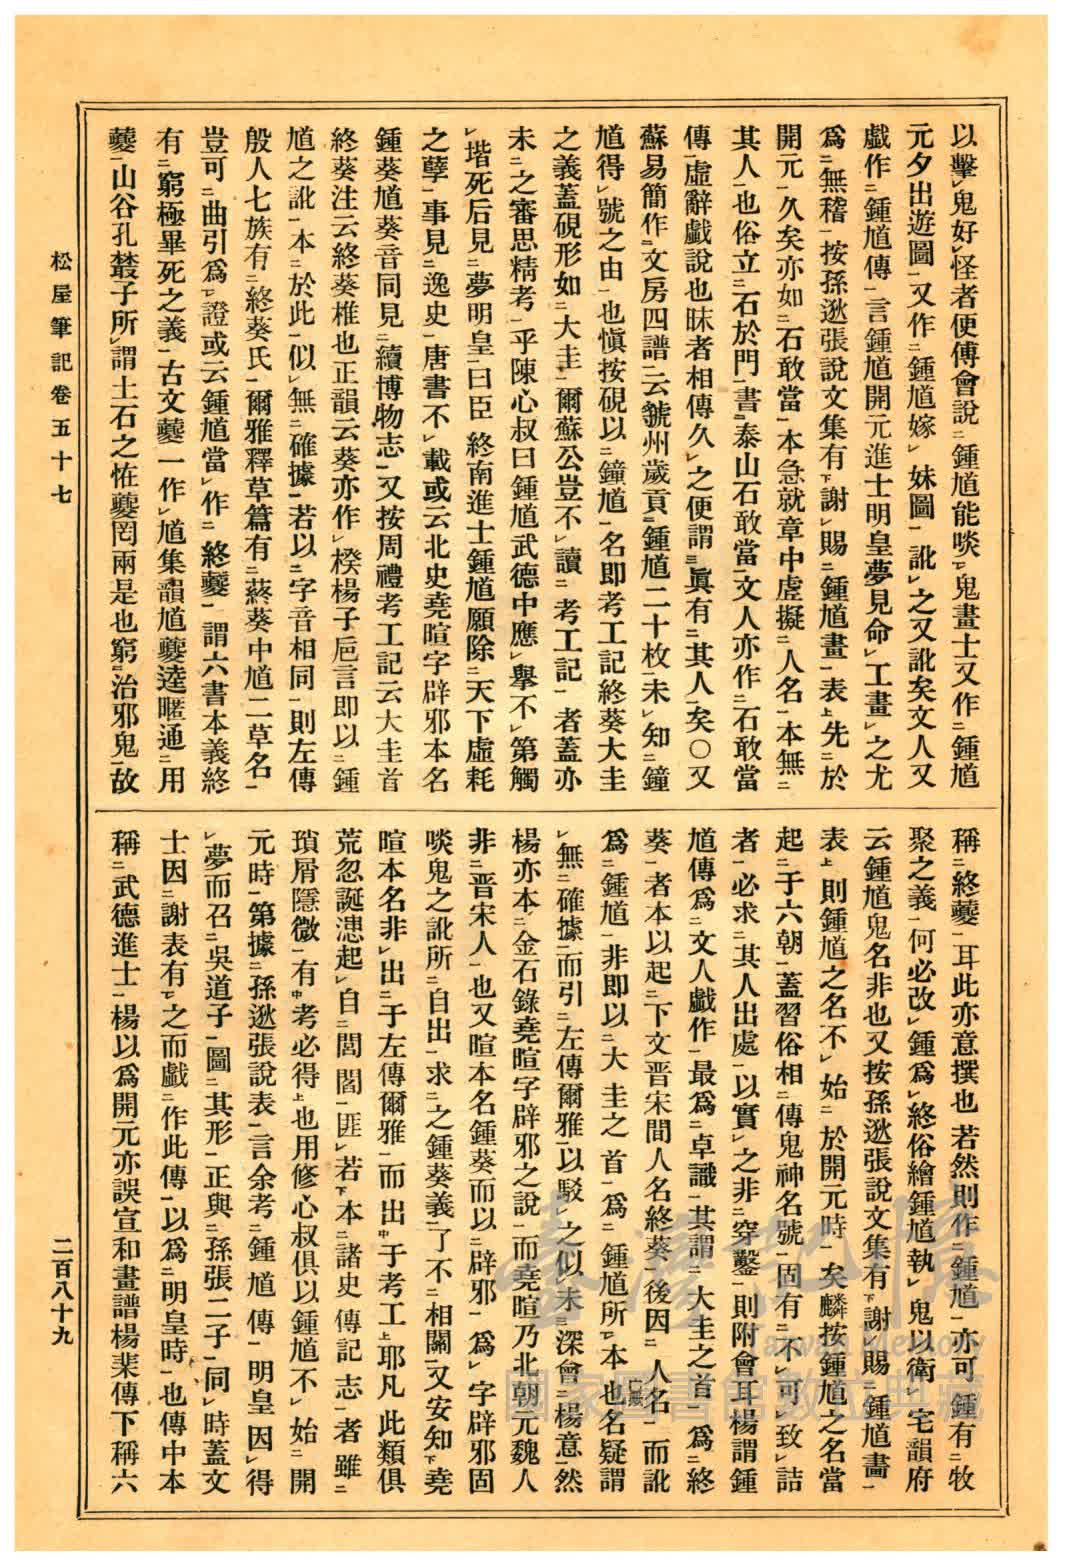 以擊鬼好怪者便傅會說鍾馗能啖鬼畫士又作鍾馗
元夕出遊圖又作鍾馗嫁妹圖訛之又訛矣文人又
戲作鍾馗傳言鍾馗開元進士明皇夢見命工畫之尤
爲無稽按孫逖張說文集有謝賜鍾馗畫表先於
開元久矣亦如石敢當本急就章中虛擬人名本無
其人也俗立石於門書泰山石敢當文人亦作石敢當
傳虛辭戲說也昧者相傳久之便謂眞有其人矣〇又
蘇易簡作文房四譜云虢州歲貢鍾馗二十枚未知鐘
馗得號之由也愼按硯以鐘馗名即考工記終葵大圭
之義蓋硯形如大圭爾蘇公豈不讀考工記者蓋亦
未之審思精考乎陳心叔曰鍾馗武德中應舉不第觸
堦死后見夢明皇曰臣終南進士鍾馗願除天下虛耗
之孽事見逸史唐書不載或云北史堯暄字辟邪本名
鍾葵馗葵音同見續博物志又按周禮考工記云大圭首
終葵注云終葵椎也正韻云葵亦作楑楊子巵言即以鍾
馗之訛本於此似無確據若以字音相同則左傳
殷人七族有終葵氏爾雅釋草篇有蔠葵中馗二草名
豈可曲引爲證或云鍾馗當作終夔謂六書本義終
有窮極畢死之義古文夔一作馗集韻馗夔逵暱通用
夔山谷孔叢子所謂土石之恠夔罔兩是也窮治邪鬼故
稱終夔耳此亦意撰也若然則作鍾馗亦可鍾有牧
聚之義何必改鍾爲終俗繪鍾馗執鬼以衛宅韻府
云鍾馗鬼名非也又按孫逖張說文集有謝賜鍾馗畵
表則鍾馗之名不始於開元時矣麟按鍾馗之名當
起于六朝蓋習俗相傳鬼神名號固有不可致詰
者必求其人出處以實之非穿鑿則附會耳楊謂鍾
馗傳爲文人戲作最爲卓識其謂大圭之首爲終
葵者本以起下文晋宋間人名終葵後因人名而訛
爲鍾馗非即以大圭之首爲鍾馗所本也名疑謂
無確據而引左傳爾雅以駁之似未深會楊意然
楊亦本金石錄堯暄字辟邪之說而堯暄乃北朝元魏人
非晋宋人也又暄本名鍾葵而以辟邪爲字辟邪固
啖鬼之訛所自出求之鍾葵義了不相關又安知堯
暄本名非出于左傳爾雅而出于考工耶凡此類俱
荒忽誕漶起自閭閻匪若本諸史傳記志者雖
瑣屑隱微有考必得也用修心叔俱以鍾馗不始開
元時第據孫逖張說表言余考鍾馗傳明皇因得
夢而召吳道子圖其形正與孫張二子同時蓋文
士因謝表有之而戲作此傳以爲明皇時也傳中本
稱武德進士楊以爲開元亦誤宣和畫譜楊棐傳下稱六
松屋筆記卷五十七
二百八十九
臺灣記憶
Taiwan Memory
國家圖書館數位典藏